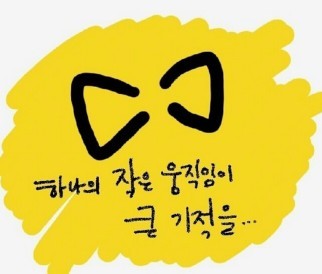 하나의 작은 움직임이
큰 기적을...